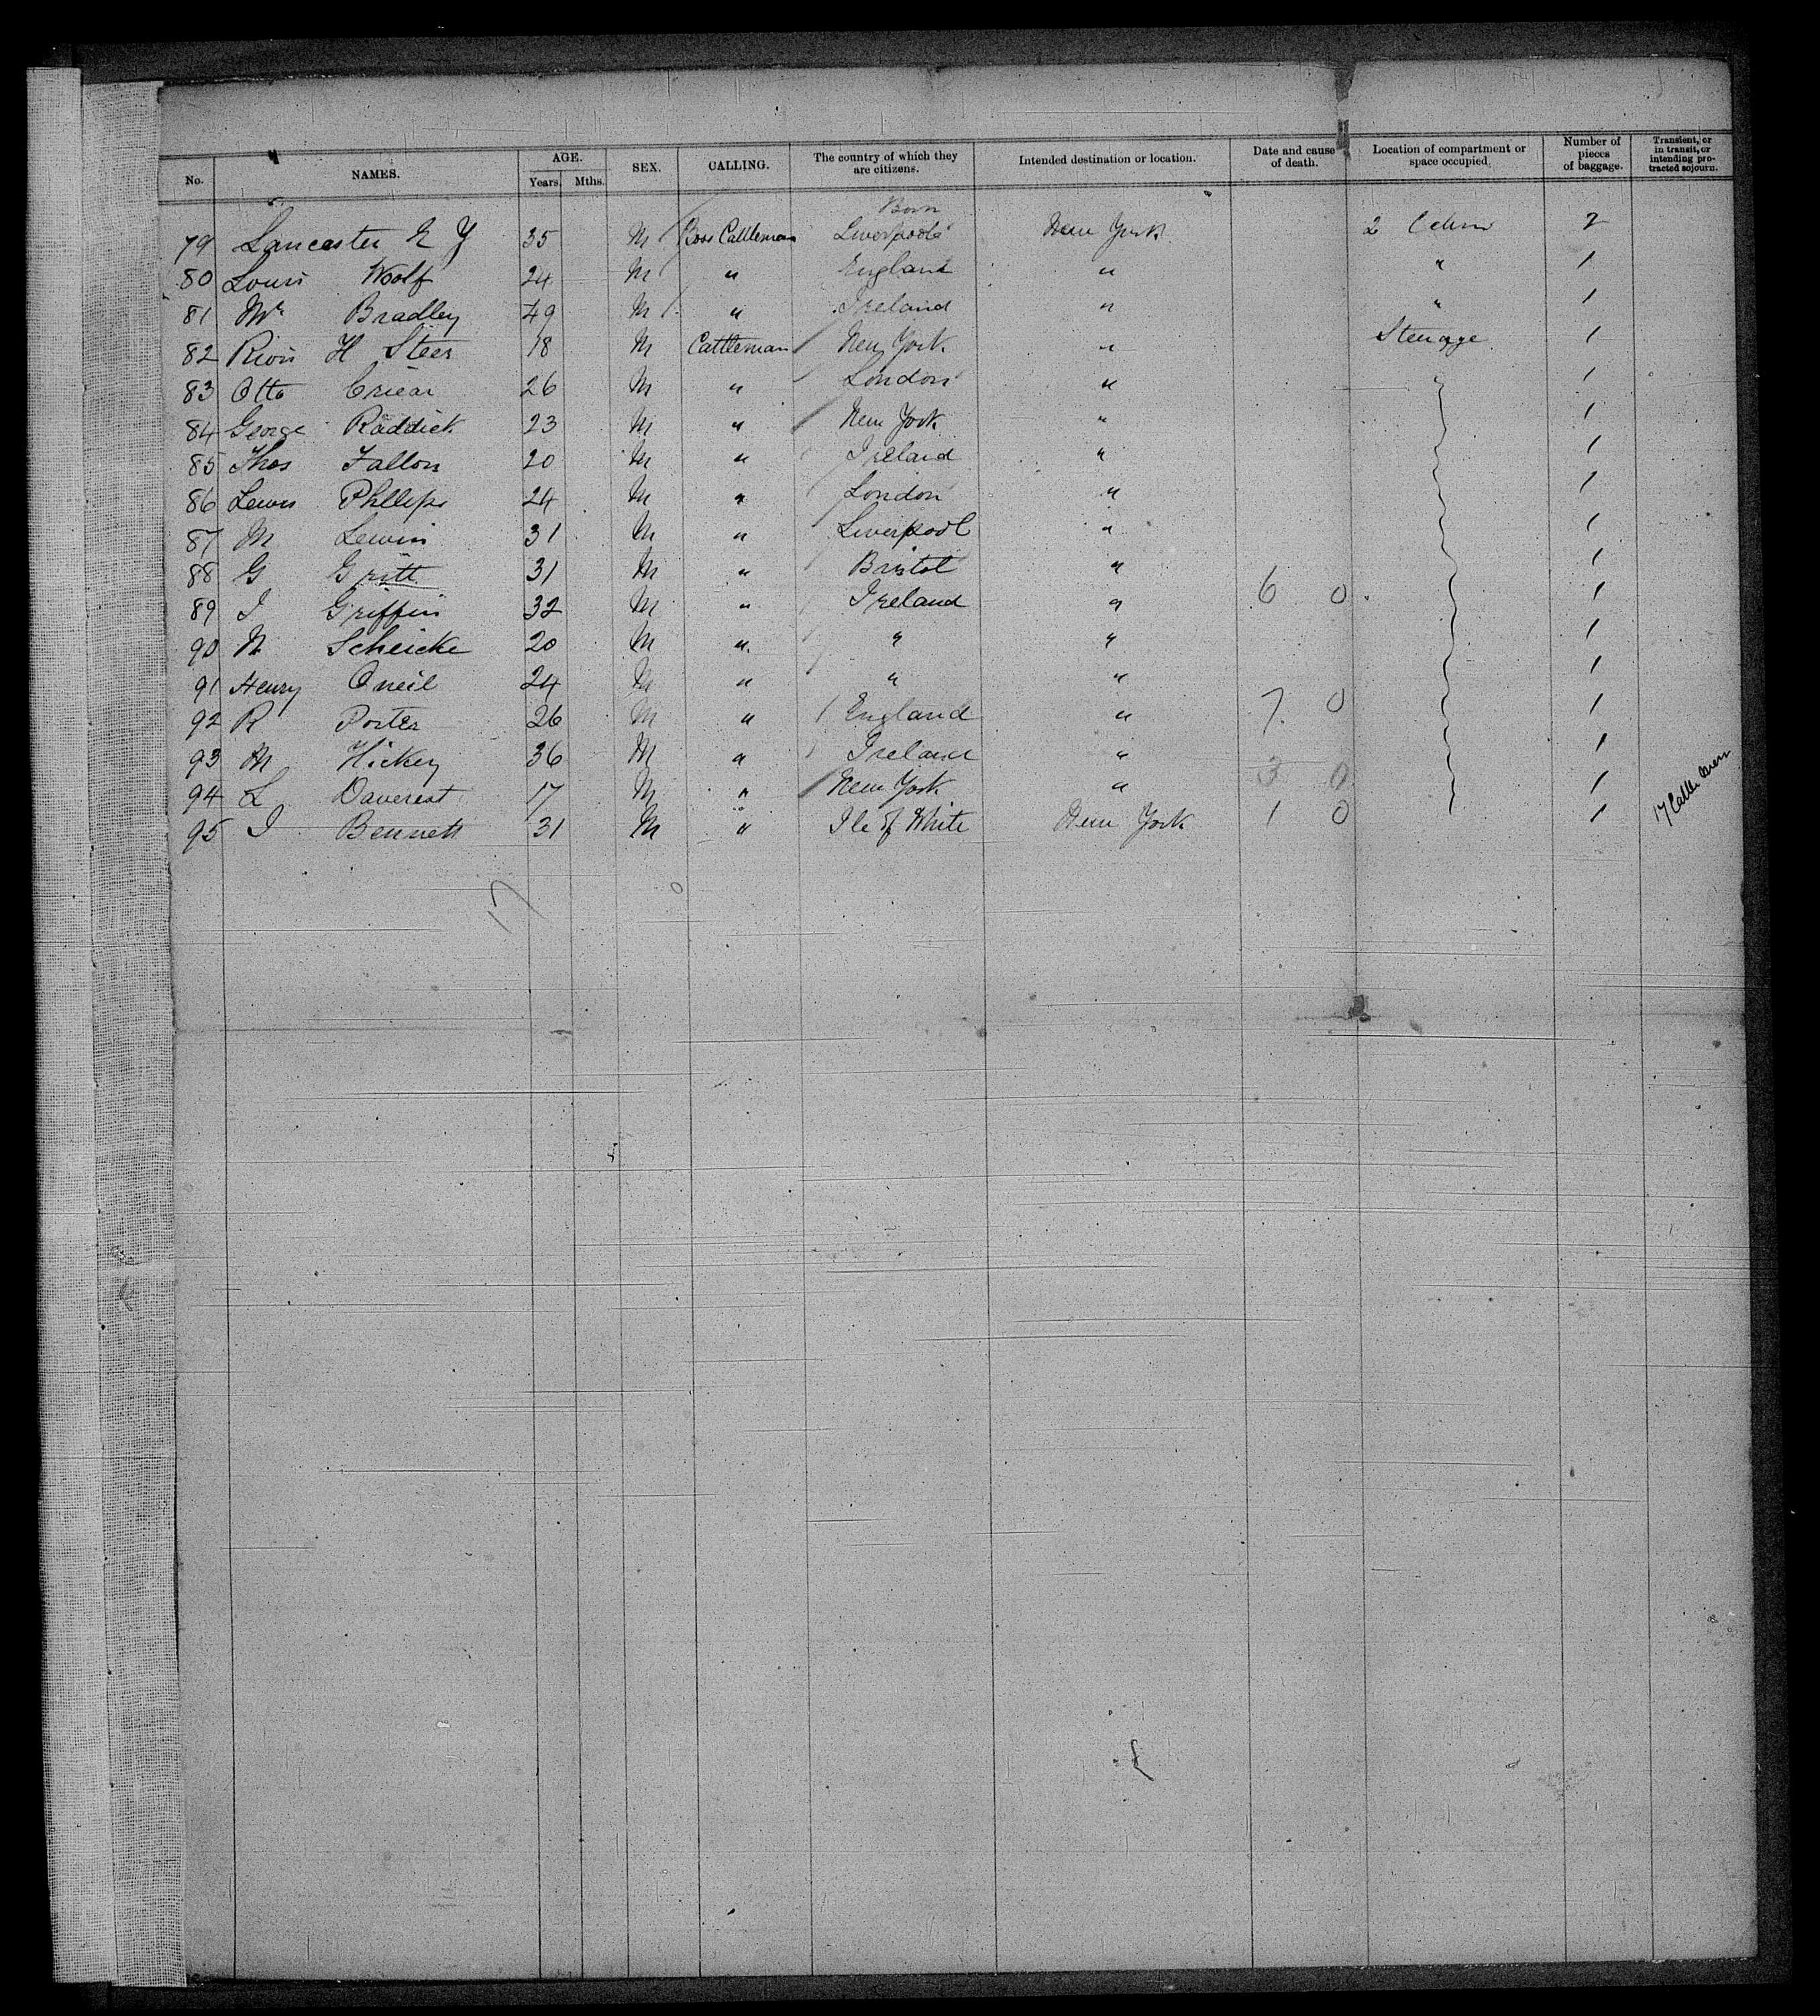 No. NAMES. AGE. Years. Mths. SEX. CALLING. The country of which they are citizens. Intended destination or location. Date and cause of death. Location of compartment or space occupied. Number of pieces of baggage. Transient, or in transit, or intending protracted sojourn.
Born
79 Lancaster E Y 35 M Boss Cattleman Liverpool New York 2 2
80 Louis Woolf 24 M " England " " 1
81 Mr Bradley 49 M " Ireland " " 1
82 H Steer 18 M Cattleman New York " Steerage 1
83 Otto Criear 26 M " London " " 1
84 George Raddick 23 M " New York " 1
85 Thos Fallon 20 M " Ireland " 1
86 Lewis Phllips 24 M " London " 1
87 M Lewin 31 M " Liverpool " 1
88 G Gritt 31 M " Bristol " 1
89 J Griffin 32 M " Ireland " 6 0 1
90 N Scheicke 20 M " " " 1
91 Henry Oneil 24 M " " " 1
92 R Porter 26 M " England " 7 0 1
93 M Hickey 36 M " Ireland " 1
94 L Daverest 17 M " New York " 3 0 1
95 J Bennett 31 M " Ile of White New York 1 0 1
17 Cattle men
17